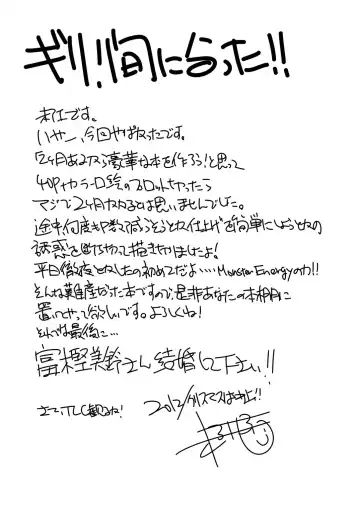 ギリ!間に合った!!
末広です。
いやー、今回やばかったです。
2ヶ月あるから豪華な本を作ろう!と思って
40Pやカラー口絵のプロットを切ったら
マジで2ヶ月かかるとは思いませんでした。
途中何度もP数を減らそうとか仕上げを簡単にしようとかの
誘惑を断ち切って描きやりましたよ!
平日徹夜とかしたの初めてだよ…Monster Energyの力!!
そんな難産だった本ですので是非あなたの本棚に
置いてやって欲しいです。よろしくね!
そんでは最後に…
富樫美鈴さん結婚して下さい!!
2012/クリスマスは中止!!